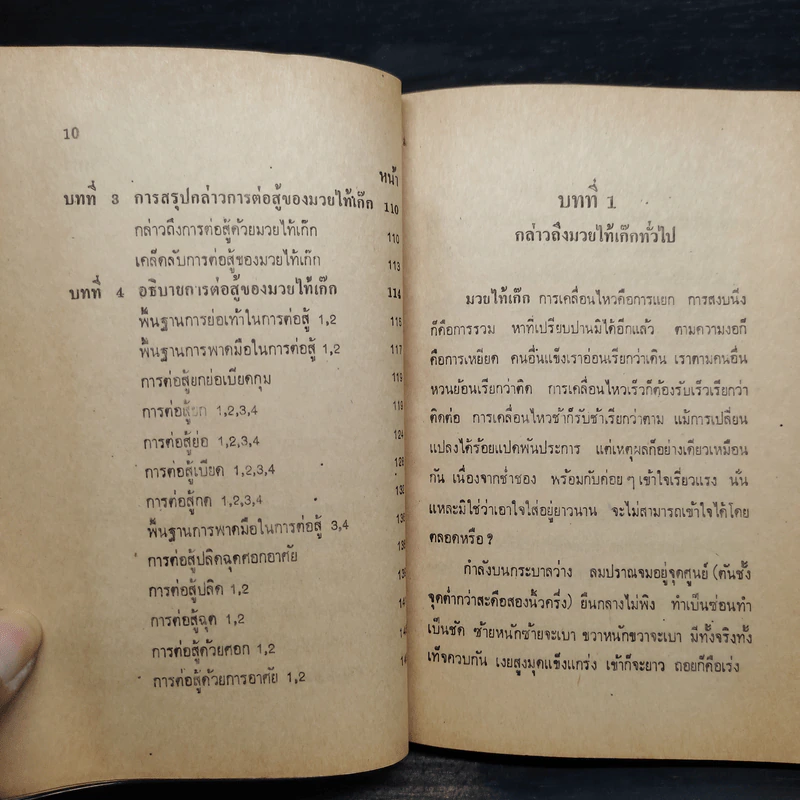 10
หน้า
บทที่ 3 การสรุปกล่าวการต่อสู้ของมวยไท้เก๊ก 110
กล่าวถึงการต่อสู้ด้วยมวยไท้เก๊ก 110
เคล็ดลับการต่อสู้ของมวยไท้เก๊ก 113
บทที่ 4 อธิบายการต่อสู้ของมวยไท้เก๊ก 114
พื้นฐานการย่อเท้าในการต่อสู้ 1,2 116
พื้นฐานการพาดมือในการต่อสู้ 1,2 117
การต่อสู้ยกย่อเบียดกุม 119
การต่อสู้ยก 1,2,3,4 119
การต่อสู้ย่อ 1,2,3,4 124
การต่อสู้เบียด 1,2,3,4
การต่อสู้กด 1,2,3,4
พื้นฐานการพาดมือในการต่อสู้ 3,4
การต่อสู้ปลิดฉุดศอกอาศัย
การต่อสู้ปลิด 1,2
การต่อสู้ฉุด 1,2
การต่อสู้ด้วยศอก 1,2
การต่อสู้ด้วยการอาศัย 1,2
บทที่ 1
กล่าวถึงมวยไท้เก๊กทั่วไป
มวยไท้เก๊ก การเคลื่อนไหวคือการแยก การสงบนึ่ง
ก็คือการรวม หาที่เปรียบปานมิได้อีกแล้ว ตามความงอก็
คือการเหยียด คนอื่นแข็งเราอ่อนเรียกว่าเดิน เราตามคนอื่น
หวนย้อนเรียกว่าติด การเคลื่อนไหวเร็วก็ต้องรับเร็วเรียกว่า
ติดต่อ การเคลื่อนไหวช้าก็รับช้าเรียกว่าตาม แม้การเปลี่ยน
แปลงได้ร้อยแปดพันประการ แต่เหตุผลก็อย่างเดียวเหมือน
กัน เนื่องจากช่ำชอง พร้อมกับค่อย ๆ เข้าใจเรี่ยวแรง นั่น
แหละมิใช่ว่าเอาใจใส่อยู่ยาวนาน จะไม่สามารถเข้าใจได้โดย
ตลอดหรือ ?
กำลังบนกระบาลว่าง ลมปราณจมอยู่จุดศูนย์ (ตันซั้ง
จุดต่ำกว่าสะดือสองนิ้วครึ่ง) ยืนกลางไม่พิง ทำเป็นซ่อนทำ
เป็นชัด ซ้ายหนักซ้ายจะเบา ขวาหนักขวาจะเบา มีทั้งจริงทั้ง
เท็จควบกัน เงยสูงมุดแข็งแกร่ง เข้าก็จะยาว ถอยก็คือเร่ง